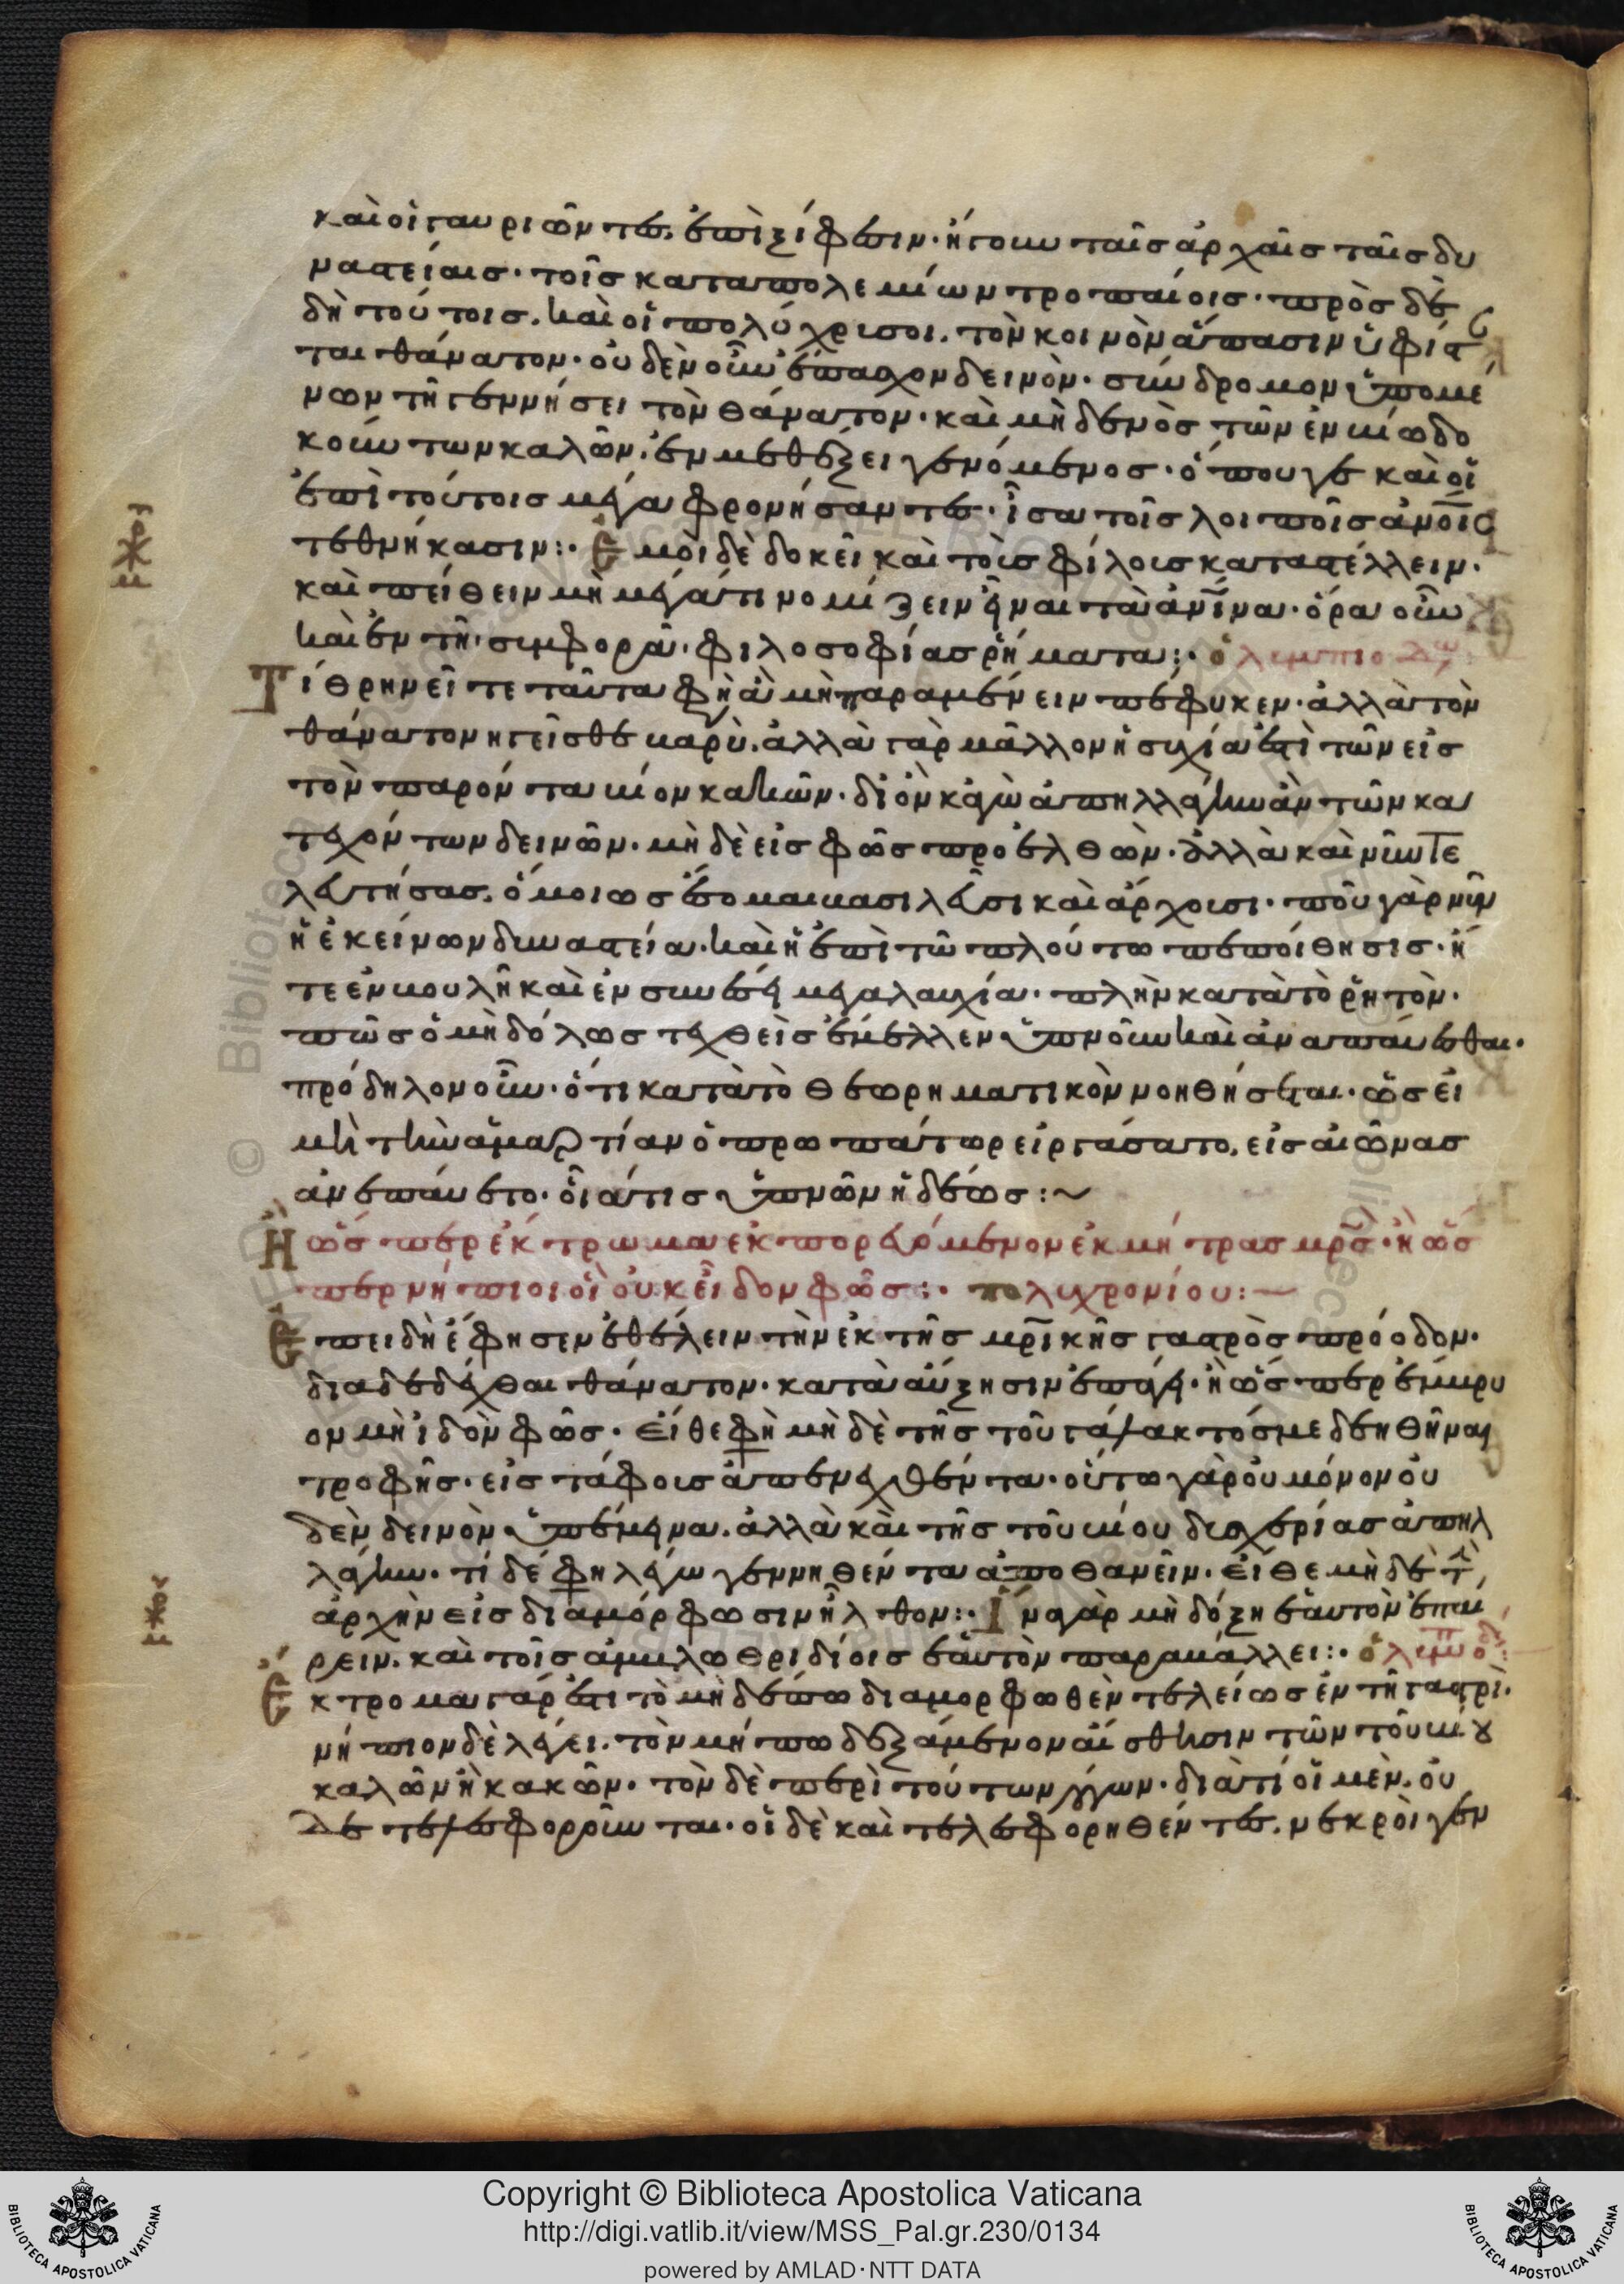 καὶ οἱ γαυριῶντες ἐπὶ ξίφεσιν· ἤγουν ταῖς ἀρχαῖς ταῖς δυ
ναστείαις· τοῖς κατὰ πολεμίων τροπαίοις· πρὸς δὲ
δὴ τούτοις. καὶ οἱ πολύχρυσοι. τὸν κοινὸν ἅπασιν ὑφίσ
ται θάνατον· οὐδὲν οὖν ἔπασχον δεινὸν· σύνδρομον ὑπομέ
νων τῆ γεννήσει τὸν θάνατον· καὶ μηδενὸς τῶν ἐν βίω δο
κούντων καλῶν. ἐν μεθέξει γενόμενος· ὅπου γε καὶ οἱ
ἐπὶ τούτοις μέγα φρονήσαντες· ἴσα τοῖς λοιποῖς ἀνοις
τεθνήκασιν:· Ἐμοὶ δὲ δοκεῖ καὶ τοὺς φίλους καταστέλλειν·
καὶ πείθειν μὴ μέγά τι νομίζειν εἶναι τὰ ἀνινα· ὅρα οὖν
καὶ ἐν τῆ συμφορᾶ· φιλοσοφίας ῥήματα:· ὀλυμπιοδω
Τί θρηνεῖτε ταῦτα φὴ ἃ μὴ παραμένειν πέφυκεν· ἀλλὰ τὸν
θάνατον ἡγεῖσθε βαρὺ. ἀλλὰ γὰρ μᾶλλον ἡσυχία ἐστὶ τῶν εἰς
τὸν παρόντα βίον κακῶν· δι' ὃν κἀγὼ ἀπηλλάγην ἂν τῶν κα
τεχόντων δεινῶν· μὴ δὲ εἰς φῶς προελθὼν· ἀλλὰ καὶ νῦν τε
λευτήσας. ὁμοίως ἔσομαι βασιλεῦσι καὶ ἄρχουσι· ποῦ γὰρ νῦν
ἡ ἐκείνων δυναστεία· καὶ ἡ ἐπὶ τῶ πλούτω πεποίθησις· ἥ
τε ἐν βουλῆ καὶ ἐν συνέσει μεγαλαυχία· πλὴν κατὰ τὸ ῥητὸν·
πῶς ὁ μηδόλως τεχθεὶς ἔμελλεν ὑπνοῦν καὶ ἀναπαύεσθαι·
πρόδηλον οὖν· ὅτι κατὰ τὸ θεωρηματικὸν νοηθήσεται· ὡς εἰ
μὴ τὴν ἁμαρτίαν ὁ προπάτωρ εἰργάσατο, εἰς αἰῶνας
ἀνεπαύετο· οἷά τις ὑπνῶν ἡδέως:~
Ἢ ὥσπερ ἔκτρωμα ἐκπορευόμενον ἐκ μήτρας μρς· ἢ ὥσ
περ νήπιοι οἳ οὐκ εἶδον φῶς:· πολυχρονίου:—
Ἐπειδὴ ἔφησεν ἐθέλειν τὴν ἐκ τῆς μρικῆς γαστρὸς πρόοδον·
διαδεδέχθαι θάνατον· κατὰ αὔξησιν ἐπάγει· ἢ ὥσπερ ἔμβρυ
ον μὴ ἰδὸν φῶς· εἴθε φὴ μὴ δὲ τῆς τοῦ γάλακτός με δεηθῆναι
τροφῆς· εἰς τάφους ἀπενεχθέντα· οὕτω γὰρ οὐ μόνον οὐ
δὲν δεινὸν ὑπέμεινα. ἀλλὰ καὶ τῆς τοῦ βίου δυσχερίας ἀπηλ
λάγην· τί δέ φη λέγω γεννηθέντα ἀποθανεῖν. εἴθε μὴ δὲ τ
ἀρχὴν εἰς διαμόρφωσιν ἦλθον:· Ἵνα γὰρ μὴ δόξη ἑαυτὸν ἐπαί
ρειν. καὶ τοῖς ἀμβλωθριδίοις ἑαυτὸν παραβάλλει:· ὀλυμπιοδ
Ἔκτρομα γάρ ἐστι τὸ μηδέπω διαμορφωθὲν τελείως ἐν τῆ γαστρὶ·
νήπιον δὲ λέγει. τὸν μήπω δεξάμενον αἴσθησιν τῶν τοῦ βίου
καλῶν ἢ κακῶν· τὸν δὲ περὶ τούτων λόγων· διὰ τί οἱ μὲν. οὐ
δὲ τελεσφοροῦνται· οἱ δὲ καὶ τελεσφορηθέντες. νεκροὶ γεν
Copyright © Biblioteca Apostolica Vaticana
http://digi.vatlib.it/view/MSS_Pal.gr.230/0134
powered by AMLAD·NTT DATA